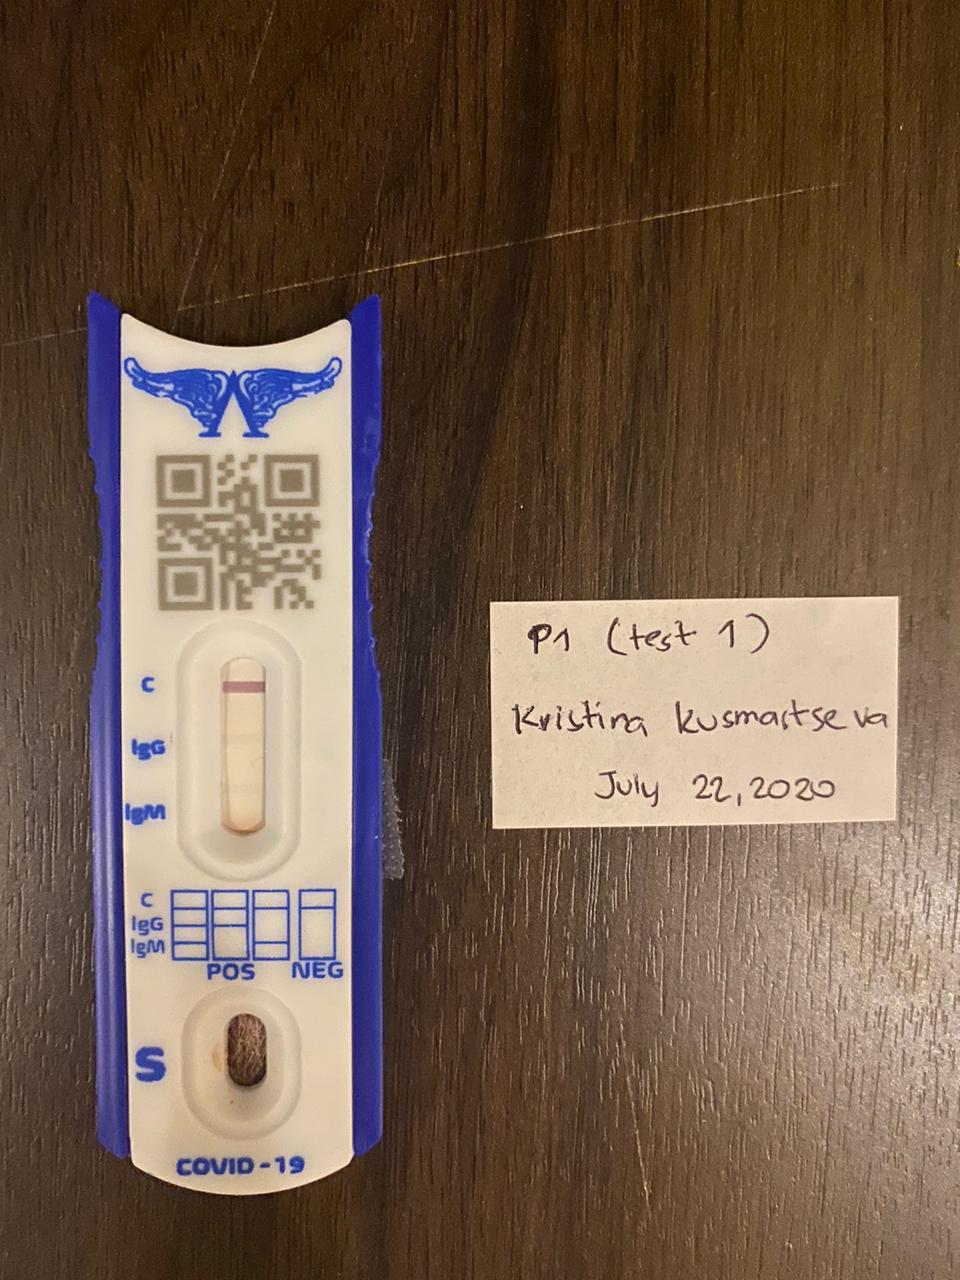 C
IgG
IgM
C
IgG
IgM
POS NEG
S
COVID-19
P1 (test 1)
Kristina Kusmartseva
July 22, 2020